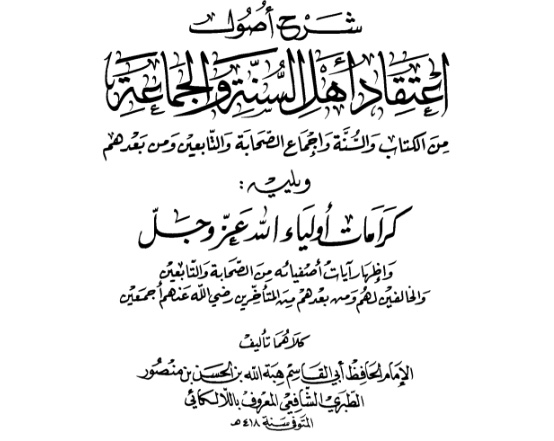 شرح أصول
اعتقاد أهل السنة والجماعة
من الكتاب والسنة وإجماع الصحابة والتابعين ومن بعدهم
ويليه :
كرامات أولياء الله عز وجل
وإظهار آيات أصفيائه من الصحابة والتابعين
والخالفين لهم ومن بعدهم من المتأخرين رضي الله عنهم أجمعين
كلاهما تأليف
الإمام الحافظ أبي القاسم هبة الله بن الحسن بن منصور
الطبري الشافعي المعروف باللالكائي
المتوفى سنة ٤١٨ هـ